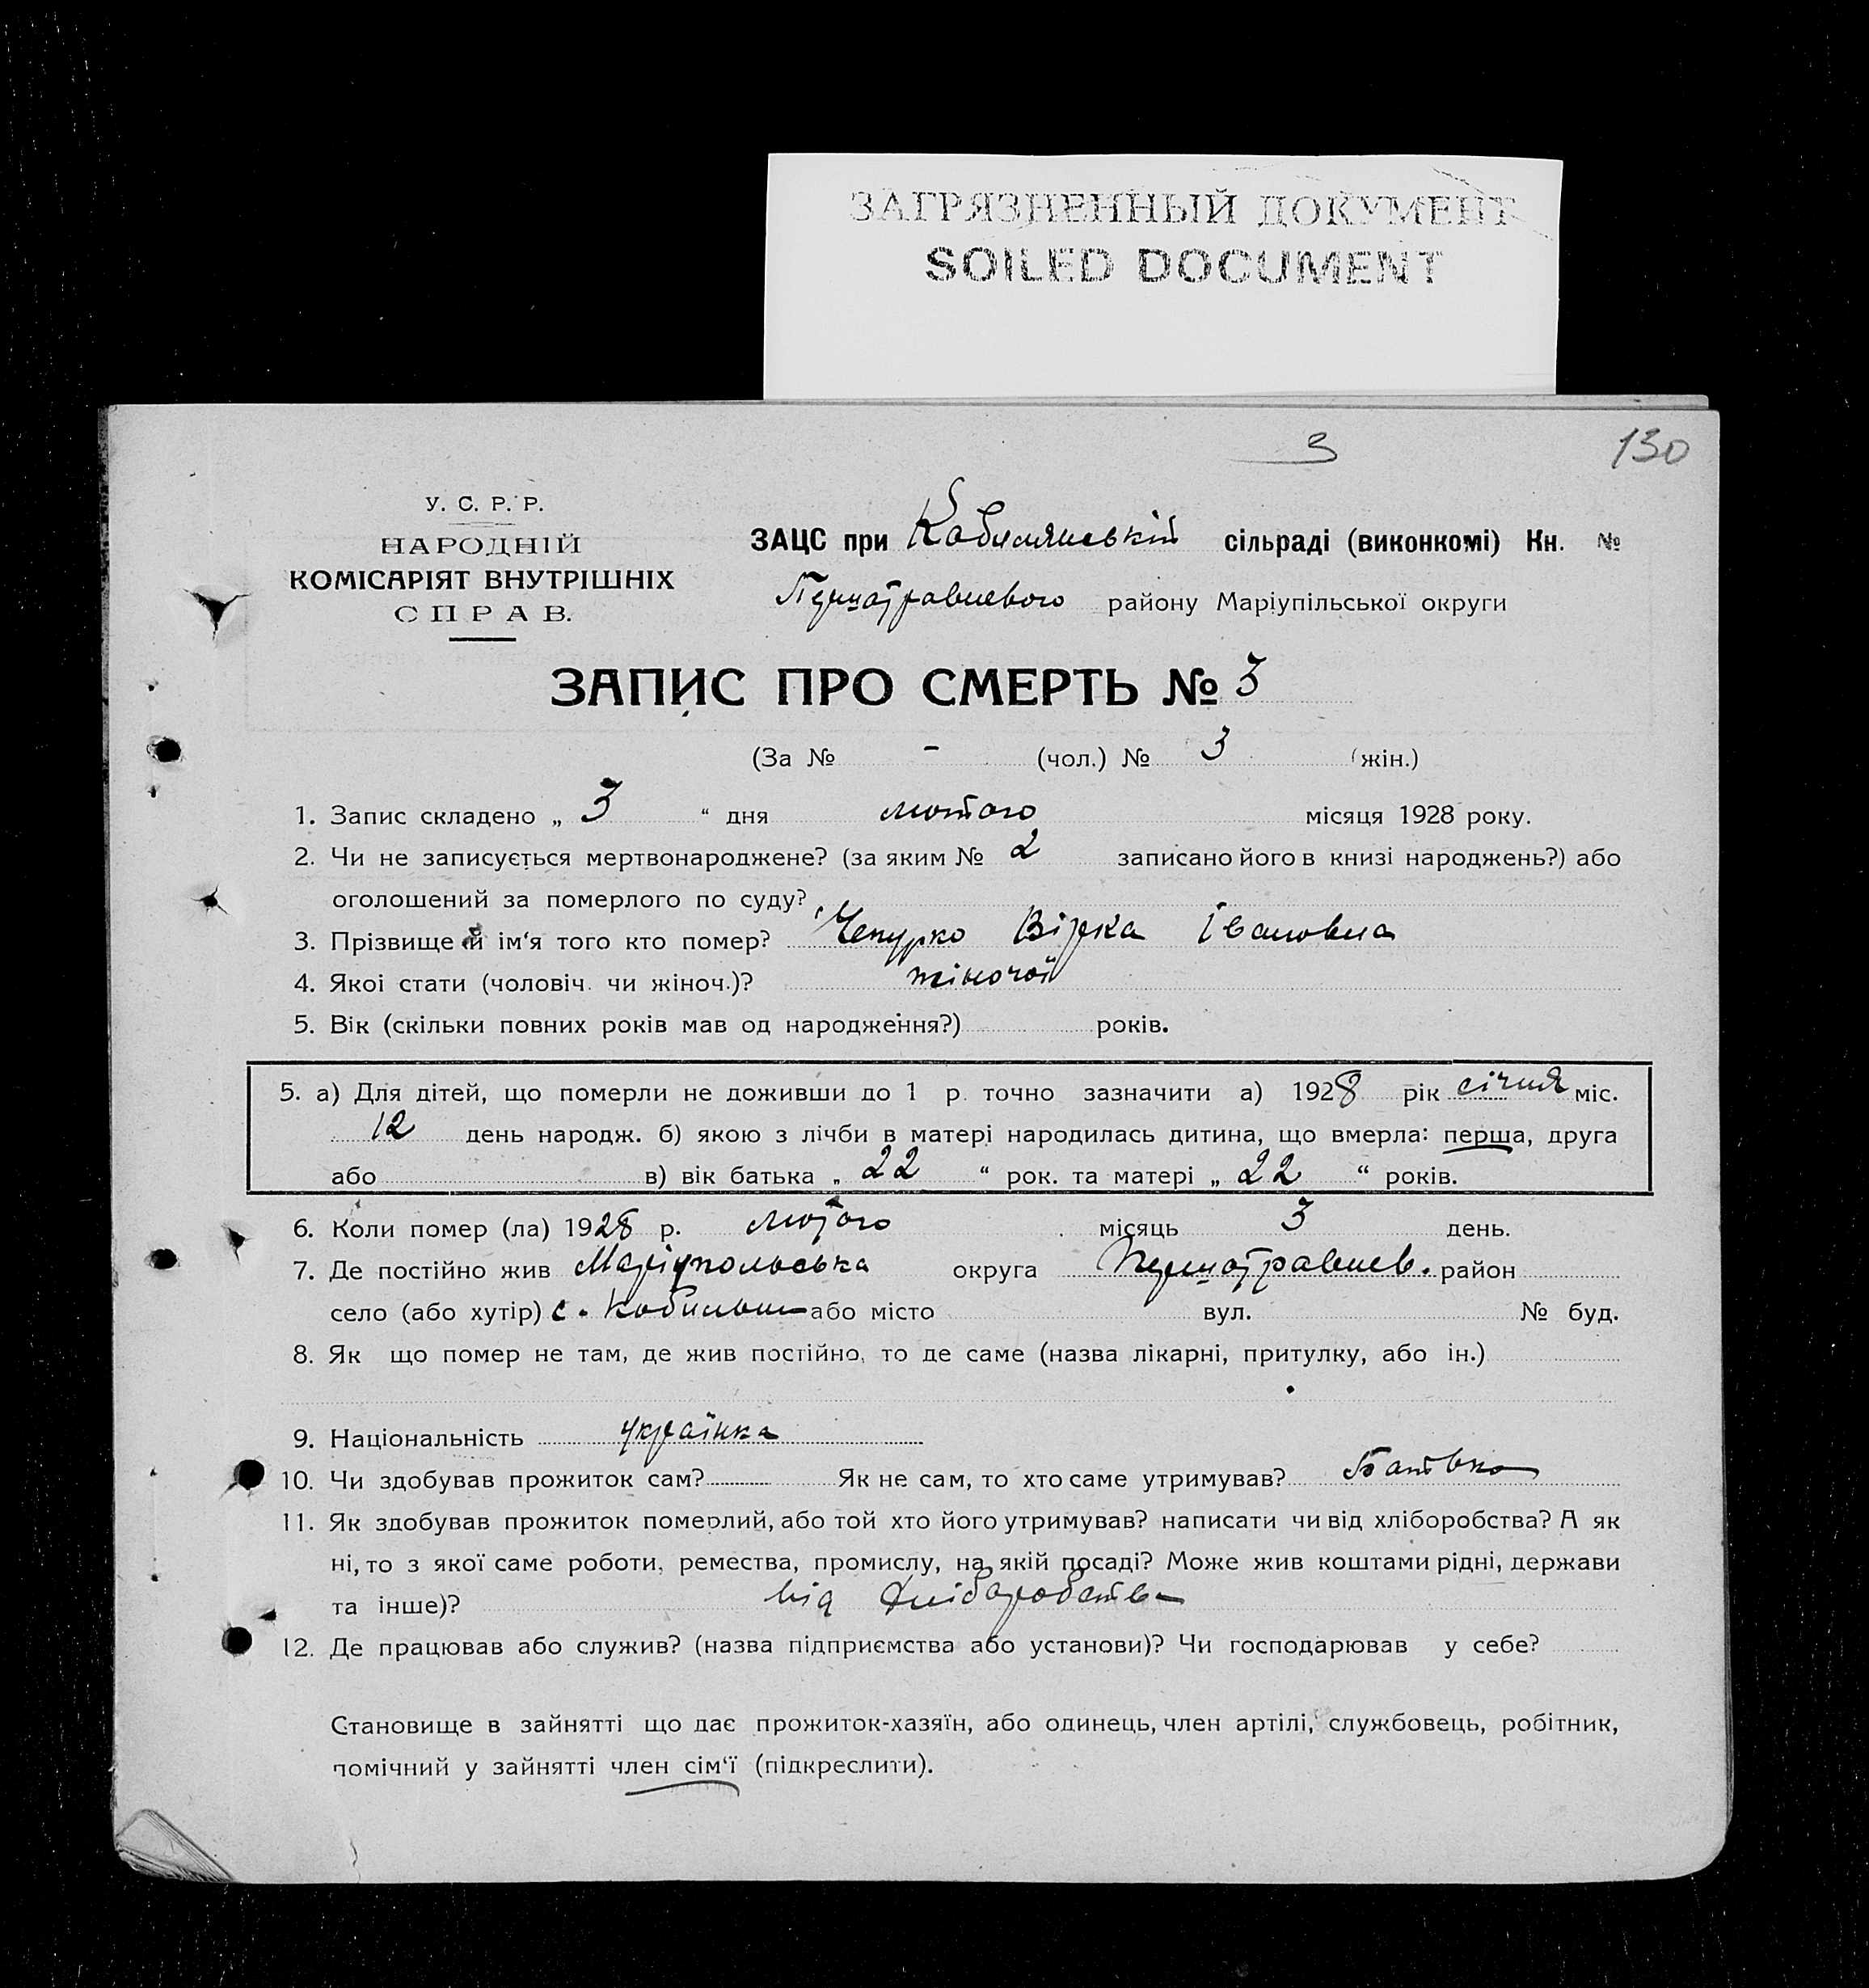 ЗАГРЯЗНЕННЫЙ ДОКУМЕНТ
SOILED DOCUMENT
3
130
У. С. Р. Р.
НАРОДНІЙ
КОМІСАРІЯТ ВНУТРІШНІХ
СПРАВ.
ЗАЦС при Кобилянській сільраді (виконкомі) Кн. №
Першотравневого району Маріупільської округи
ЗАПИС ПРО СМЕРТЬ № 3
(За № - (чол.) № 3 (жін.)
1. Запис складено „ 3 “ дня лютого місяця 1928 року.
2. Чи не записується мертвонароджене? (за яким № 2 записано його в книзі народжень?) або
оголошений за померлого по суду?
3. Прізвище й ім‘я того кто помер? Чепурко Вірка Івановна
4. Якоі стати (чоловіч. чи жіноч.)? жіночої
5. Вік (скільки повних років мав од народження?) років.
5. а) Для дітей, що померли не доживши до 1 р. точно зазначити а) 1928 рік січня міс.
12 день народж. б) якою з лічби в матері народилась дитина, що вмерла: перша, друга
або в) вік батька „ 22 “ рок. та матері „ 22 “ років.
6. Коли помер (ла) 1928 р. лютого місяць 3 день.
7. Де постійно жив Маріупольська округа Першотравнев. район
село (або хутір) с. або місто вул. № буд.
8. Як що помер не там, де жив постійно, то де саме (назва лікарні, притулку, або ін.)
9. Національність українка
10. Чи здобував прожиток сам? Як не сам, то хто саме утримував? Батько
11. Як здобував прожиток померлий, або той хто його утримував? написати чи від хліборобства? А як
ні, то з якої саме роботи, ремества, промислу, на якій посаді? Може жив коштами рідні, держави
та інше)? від хліборобства
12. Де працював або служив? (назва підприємства або установи)? Чи господарював у себе?
Становище в зайнятті що дає прожиток-хазяїн, або одинець, член артілі, службовець, робітник,
помічний у зайнятті член сім‘ї (підкреслити).